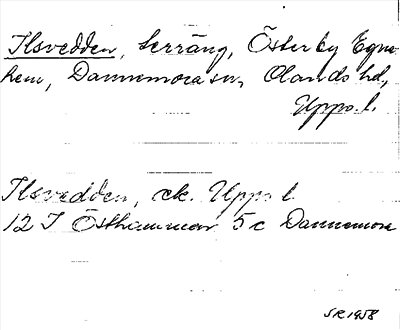 Ilsvedden, terräng, Österby Egne-
hem, Dannemora sn, Olands hd,
Upps. l.
Ilsvedden, ek. Upps l
12 I Östhammar 5c Dannemora
SR 1958